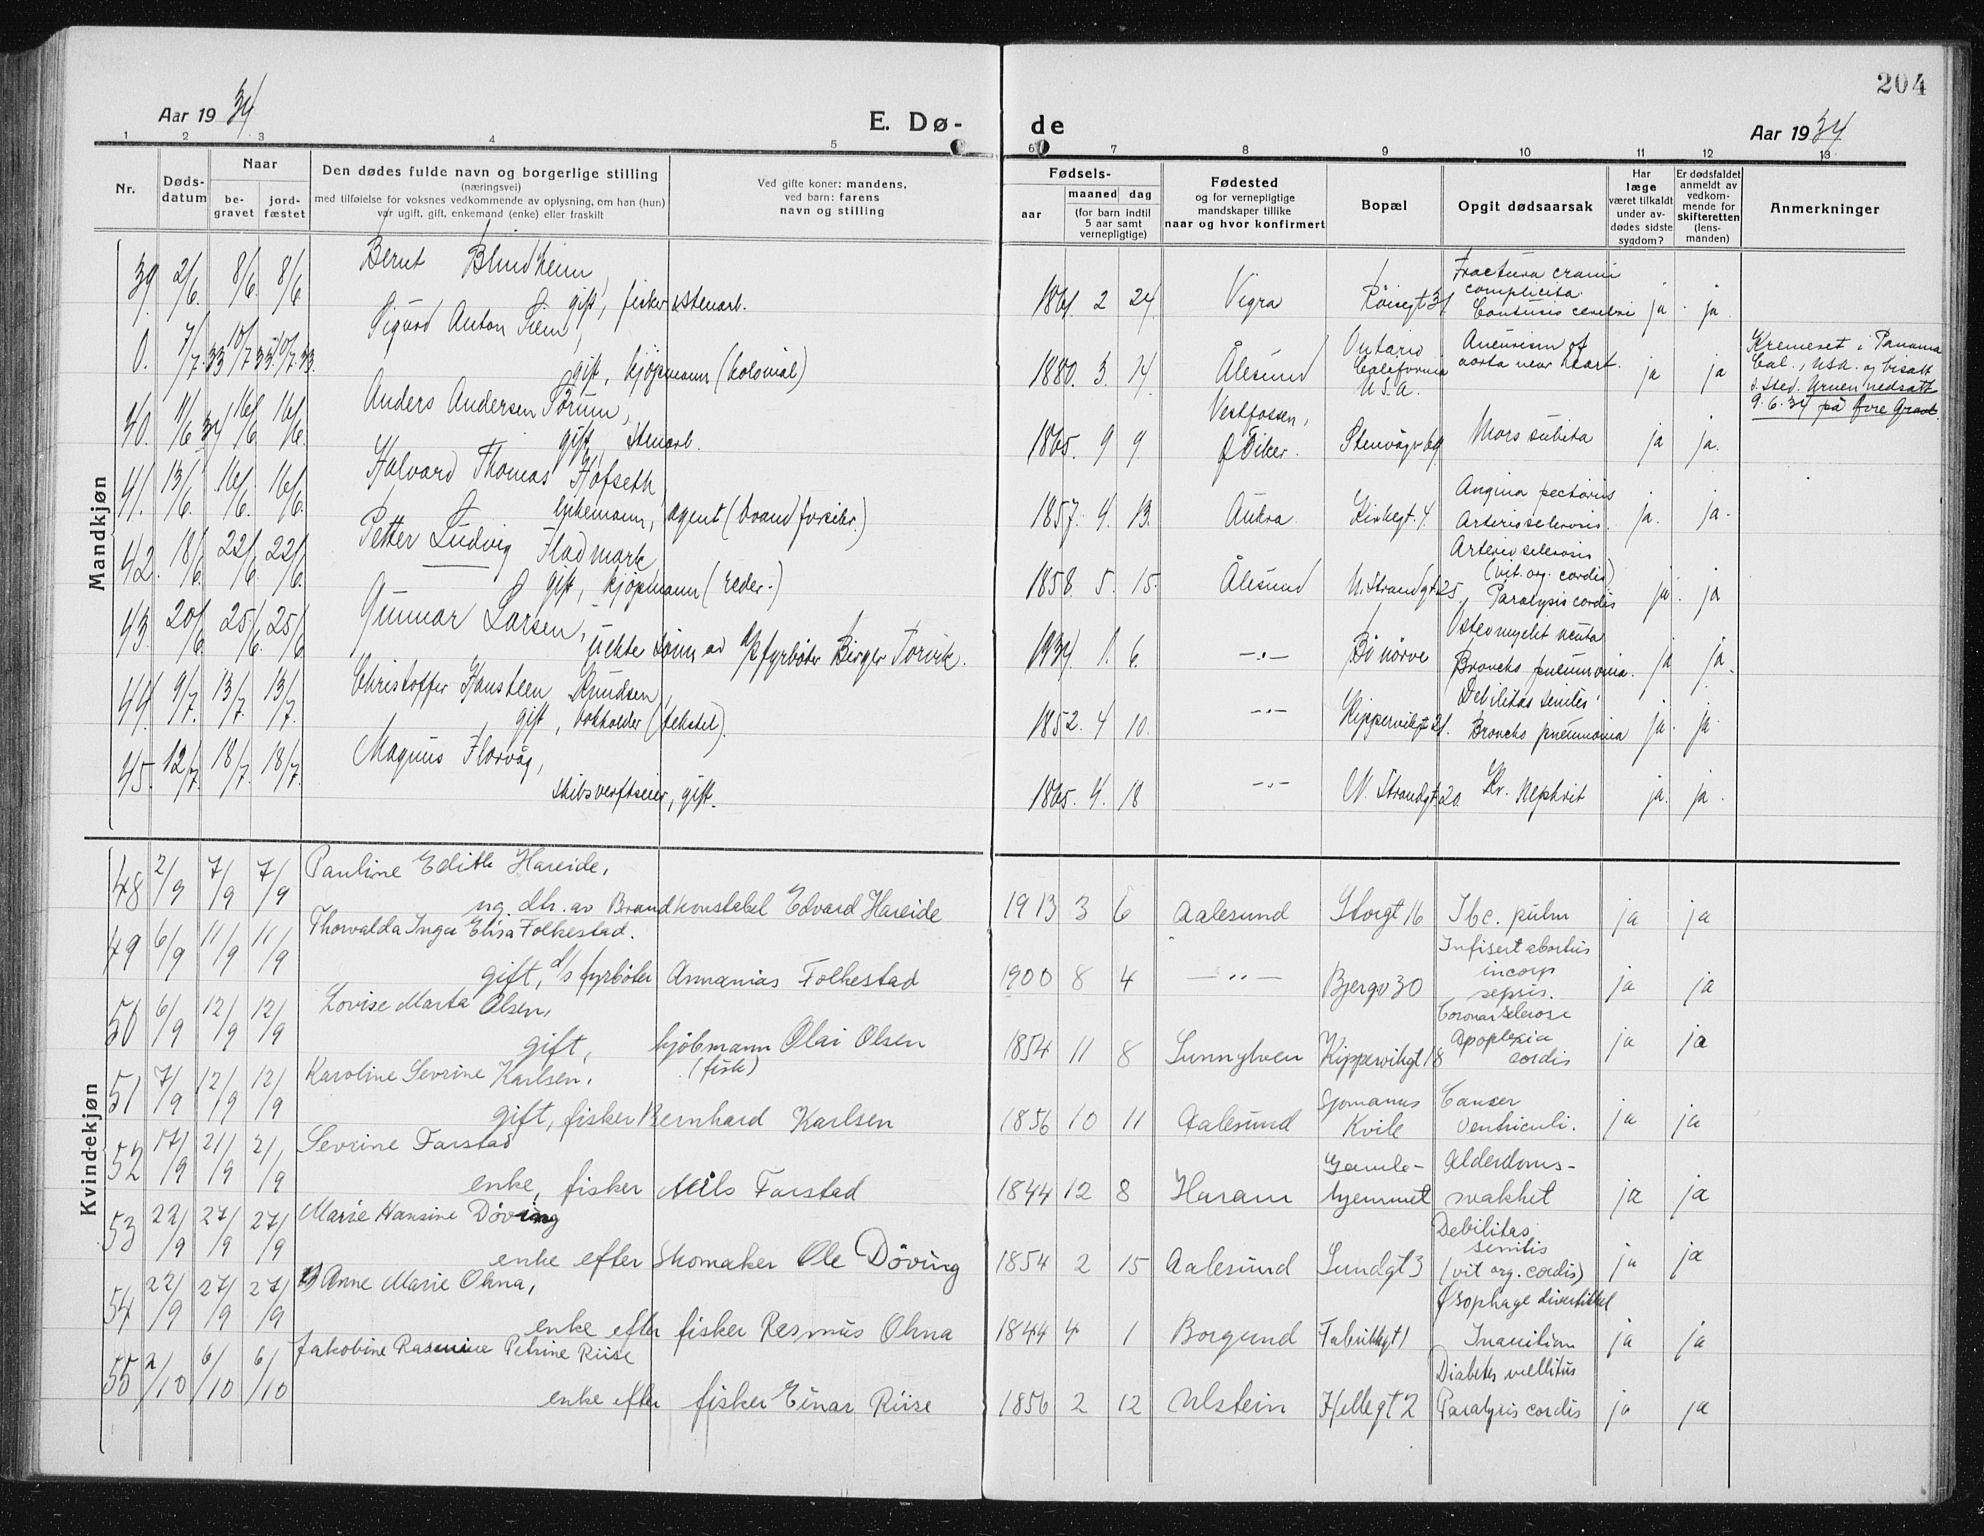 204
Aar 1934
E. Dø-
de
Aar 1934
1 2 3 4 5 6 7 8 9 10 11 12 13
Nr.
Døds-
datum
Naar
be-
gravet
jord-
fæstet
Den dødes fulde navn og borgerlige stilling
(næringsvei)
med tilføielse for voksnes vedkommende av oplysning, om han (hun)
var ugift, gift, enkemand (enke) eller fraskilt
Ved gifte koner: mandens,
ved barn: farens
navn og stilling
Fødsels-
aar
maaned
dag
(for barn indtil
5 aar samt
vernepligtige)
Fødested
og for vernepligtige
mandskaper tillike
naar og hvor konfirmert
Bopæl
Opgit dødsaarsak
Har
læge
været tilkaldt
under av-
dødes sidste
sygdom?
Er dødsfaldet
anmeldt av
vedkom-
mende for
skifteretten
(lens-
manden)
Anmerkninger
Mandkjøn
39. 2/6. 8/6. 8/6 Bernt Blindheim,
gift, fisker, stenarb. 1861. 2 24. Vigra Röisegt 31 Fractura cranii
complicita
Contusio cerebri ja. ja.
0. 7/7.33 10/7 33. 10/7.33. Sigurd Anton Siem,
gift, kjöpmann (kolonial) 1880. 3. 14. Ålesund Ontario
California
U.S.A. Aneurism of
aorta near heart. ja ja
Kremeret i Panama
Cal., USA. og bisatt
s. sted. Urnen nedsatt
9.6.34 på övre Gravl.
40. 11/6 34 16/6. 16/6. Anders Andersen Törum,
gift, stenarb. 1865. 9 9. Vestfossen,
Ø. Eiker. Stenvågv 69. Mors subita ja ja.
41. 13/6. 16/6. 16/6. Halvard Thomas Hofseth
Enkemann, agent (brandforsikr.) 1857. 9. 13. Aukra. Kirkegt. 4. Angina pectoris
Arteriosclerosis. ja. ja.
42. 18/6. 22/6. 22/6. Petter Ludvig Fladmark
gift, kjöpmann (reder.) 1858. 5. 15. Ålesund N. Strandgt. 25 Arteriosclerosis
(vit. org. cordis)
Paralysis cordis ja. ja
43. 20/6. 25/6. 25/6 Gunnar Larsen,
uekte sönn av d/s fyrböter Birger Torvik. 1934 1. 6. —"— Bi nörve Osteomyelit acuta
Broncho pneumonia. ja ja.
44. 9/7. 13/7. 13/7. Christoffer Hansteen Knudsen
gift, bokholder (tekstil). 1852. 4 10. —"— Kippervikgt 21. Debilitas senilis
Broncho pneumonia ja. ja
45. 12/7. 18/7. 18/7. Magnus Florvåg,
skibsverftseier, gift. 1865. 4. 18 —"— N. Strandgt. 20. Kr. Nephrit ja. ja.
Kvindekjøn
48 2/9 7/9 7/9 Pauline Edith Hareide,
ug. dtr. av Brandkonstabel Edvard Hareide 1913 3 6 Aalesund Storgt 16 Tbc. pulm ja ja
49 6/9 11/9 11/9 Thorvalda Inga Elisa Folkestad.
gift, d/s fyrböter Annanias Folkestad 1900 8 4 —"— Bjergv 30 Infisert abortus
incorp
sepsis. ja ja
50 6/9 12/9 12/9 Lovise Marta Olsen,
gift, kjöbmann Olai Olsen
(fisk) 1854 11 8 Sunnylven Kippervikgt 18 Coronarsclerose
Apoplexia
cordis ja ja
51 7/9 12/9 12/9 Karoline Sevrine Karlsen,
gift, fisker Bernhard Karlsen 1856 10 11 Aalesund Sjomanns
Kvile Cancer
ventriculi. ja ja
52 17/9 21/9 21/9 Sevrine Farstad
enke, fisker Nils Farstad 1844 12 8 Haram Gamle-
hjemmet Alderdoms-
svakhet ja ja
53 22/9 27/9 27/9 Marie Hansine Döving
enke efter Skomaker Ole Döving 1854 2 15 Aalesund Sundgt 3 Debilitas
senilis
(vit org. cordis) ja ja
54 22/9 27/9 27/9 Anne Marie Ohna,
enke efter fisker Rasmus Ohna 1844 4 1 Borgund Fabrikkgt 1 Øsophage divertikkel
Inanition ja ja
55 2/10 6/10 6/10 Jakobine Rasmine Petrine Riise
enke efter fisker Einar Riise 1856 2 12 Ulstein Hellegt 2 Diabetes mellitus
Paralysis cordis ja ja